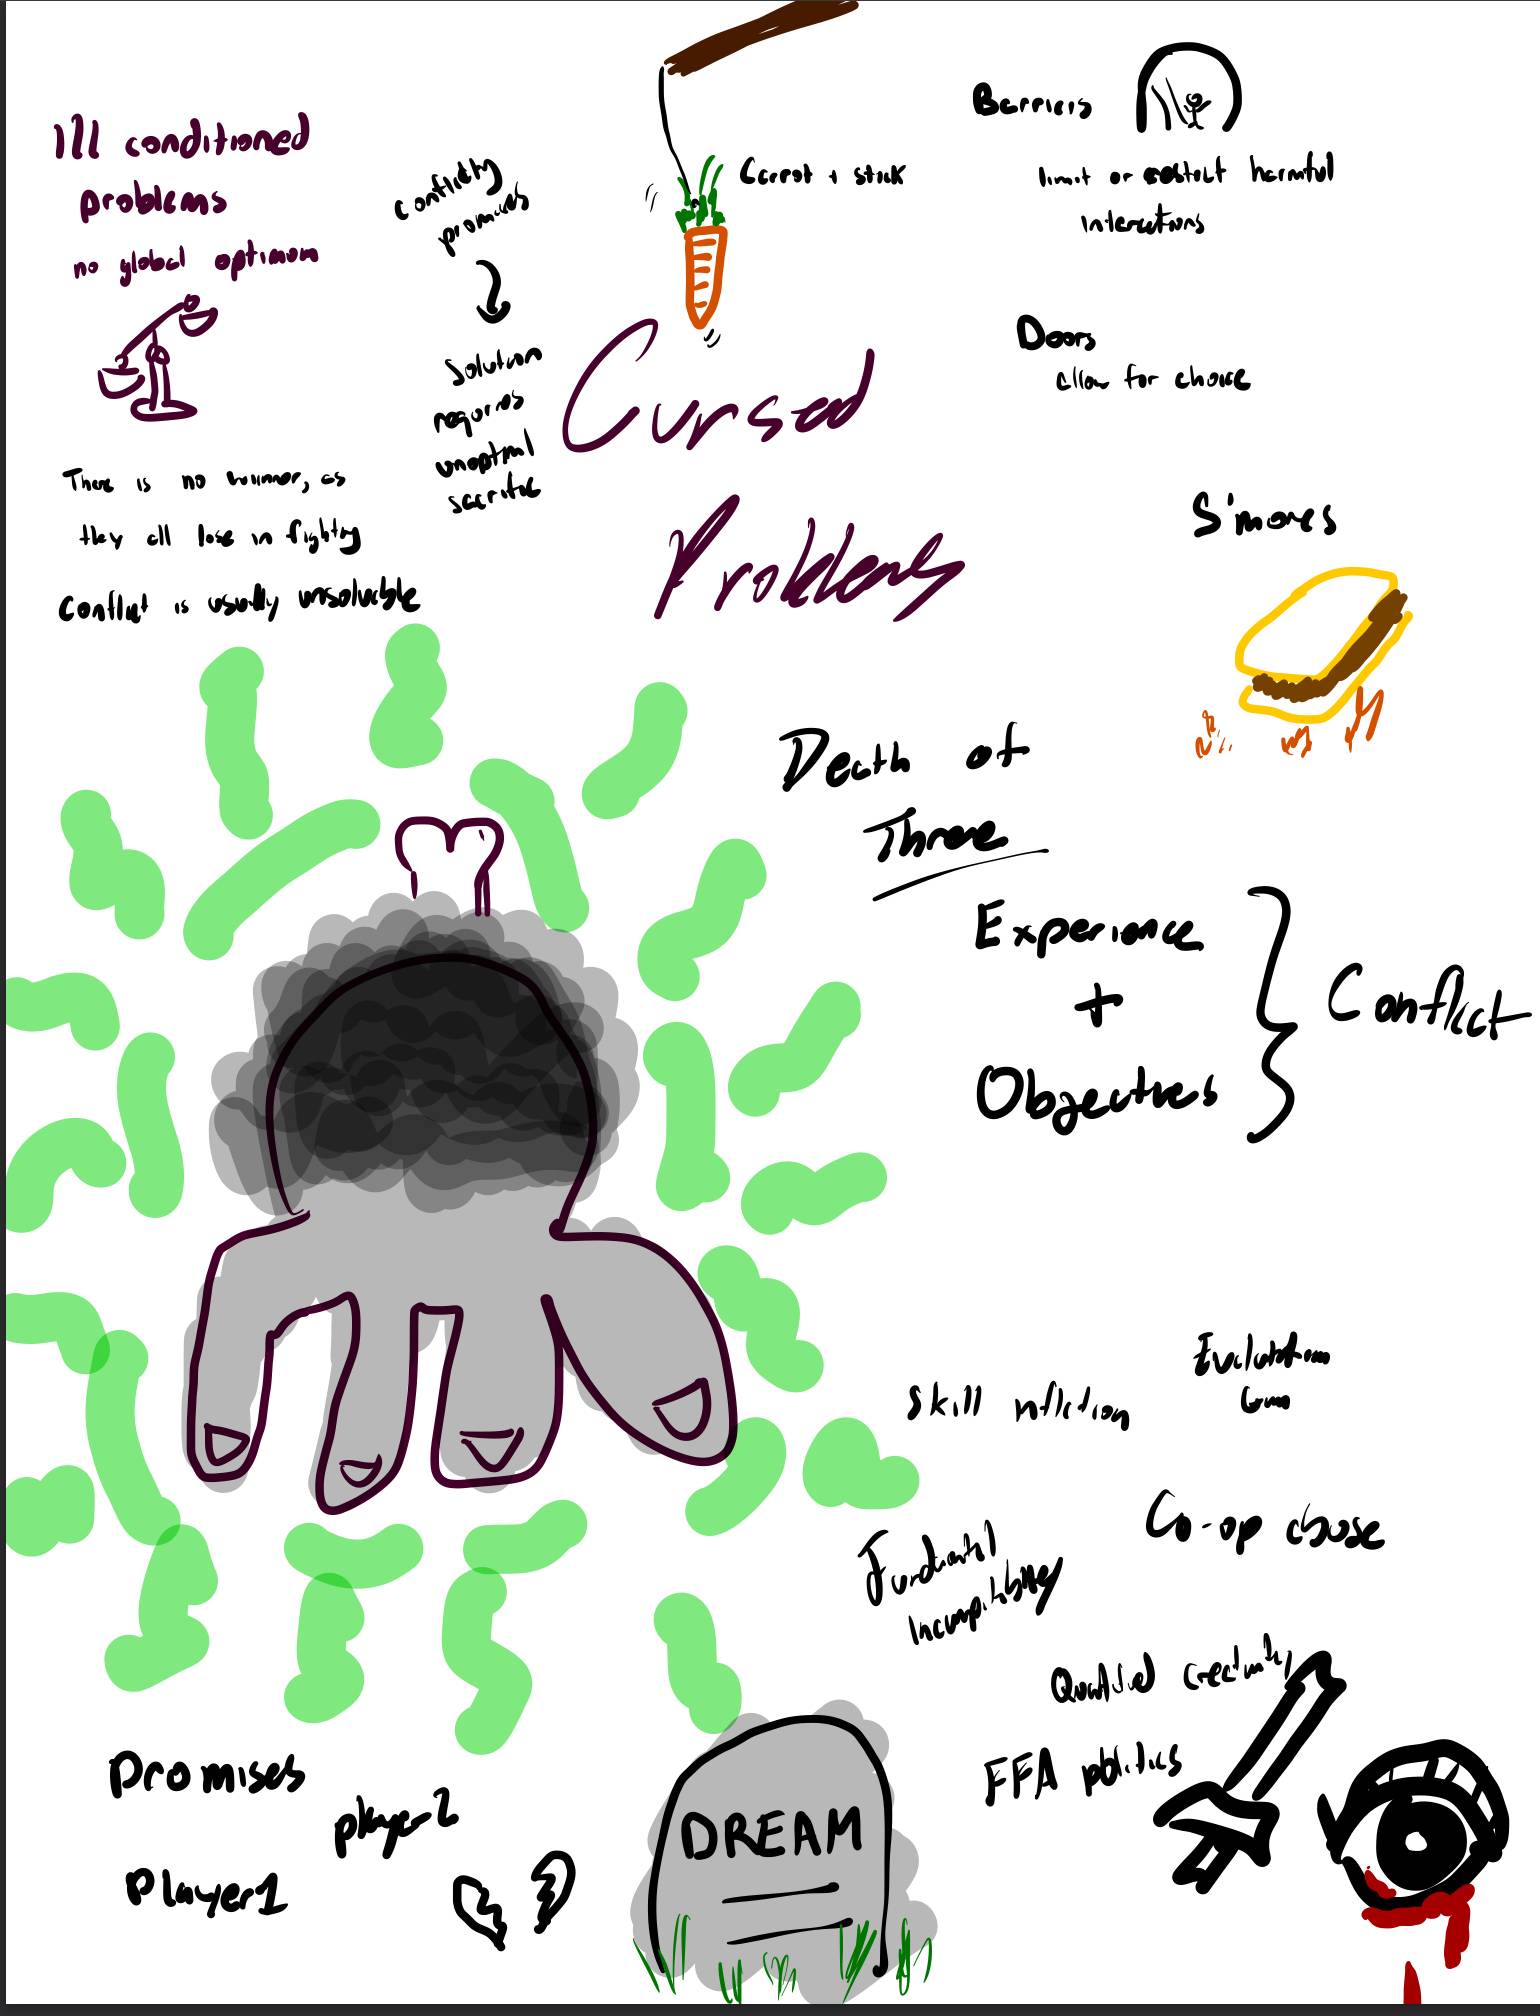 Ill conditioned
problems
no global optimum
There is no winner, as
they all lose in fighting
Conflict is usually unsolvable
conflicting
promises
Solution
requires
unoptimal
sacrifice
Carrot + stick
Cursed
Problems
Barriers
limit or restrict harmful
interactions
Doors
allow for choice
S'mores
Death of
Three
Experience
+
Objectives
Conflict
Skill
Co-op abuse
Fundamental
incompatibility
creativity
FFA politics
Promises
player 2
Player 1
DREAM